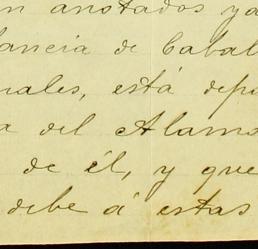 n anotados ya
lancia de Cabal
nales, está depo
a del Alamo
de él, y que
debe á estas